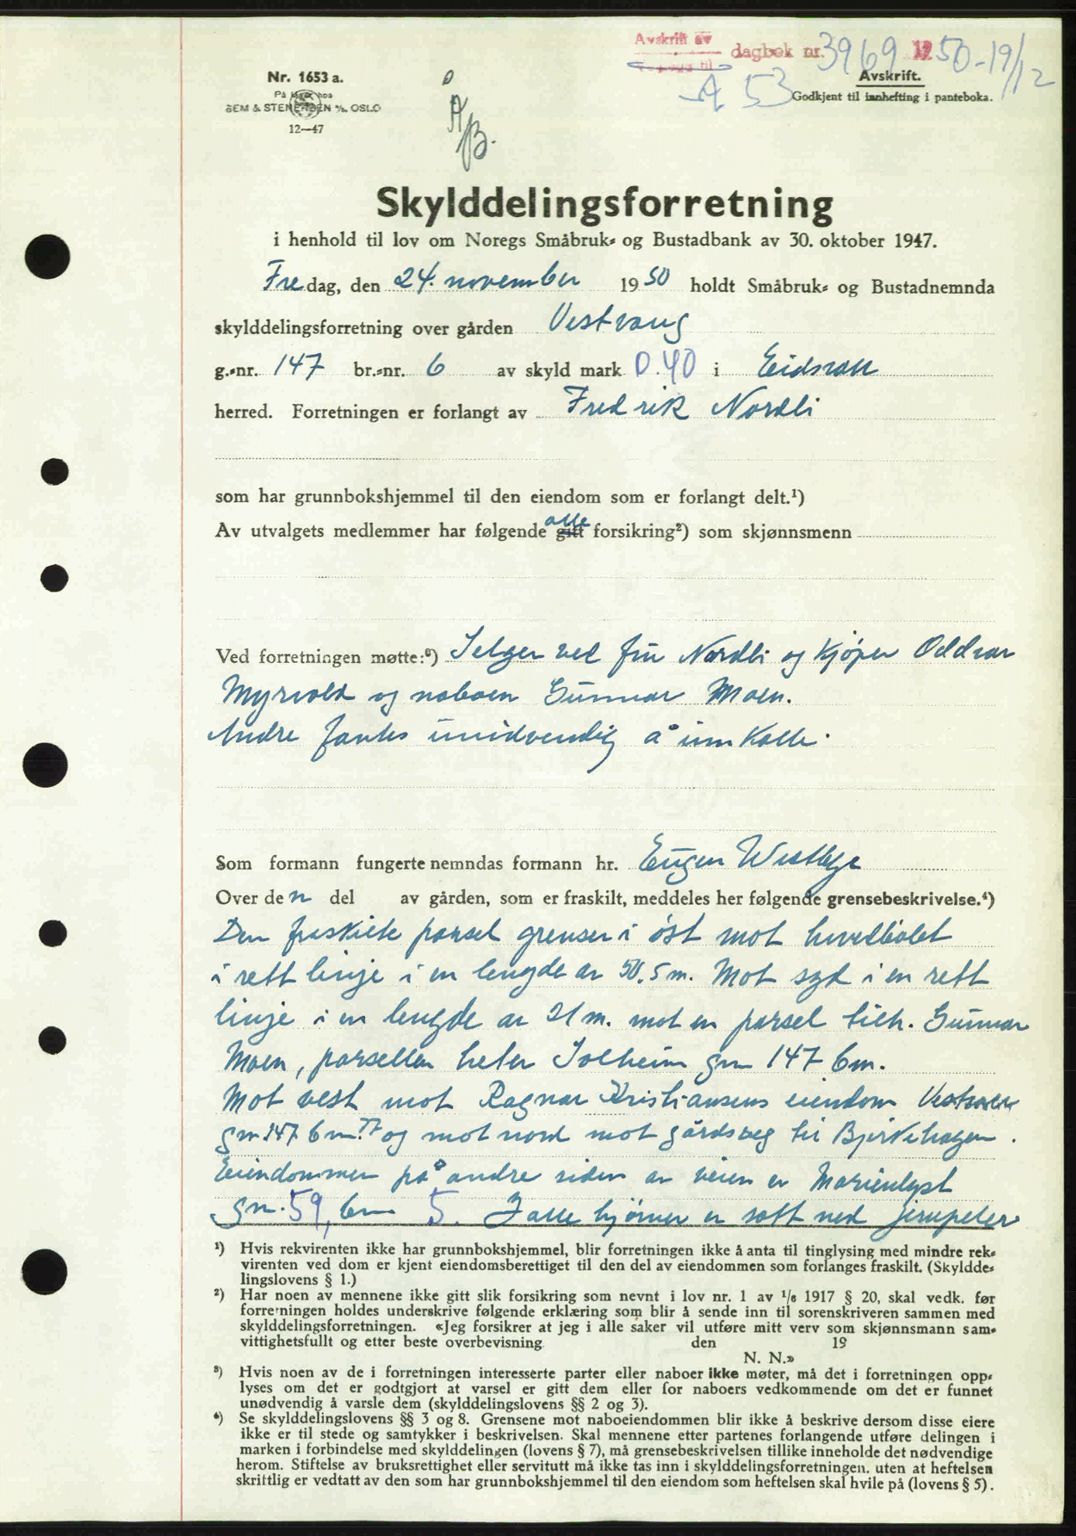 Avskrift av dagbok nr. 3969 1950-19/12
A 53
Avskrift.
Godkjent til innhefting i panteboka.
Nr. 1653 a.
På lager hos
SEM & STENERSEN A/S OSLO
12—47
A/B.
Skylddelingsforretning
i henhold til lov om Noregs Småbruk- og Bustadbank av 30. oktober 1947.
Fredag, den 24. november 1950 holdt Småbruk- og Bustadnemnda
skylddelingsforretning over gården Vestvang
g.-nr. 147 br.-nr. 6 av skyld mark 0.40 i Eidsvoll
herred. Forretningen er forlangt av Fredrik Nordli
som har grunnbokshjemmel til den eiendom som er forlangt delt.¹)
Av utvalgets medlemmer har følgende gitt alle forsikring²) som skjønnsmenn
Ved forretningen møtte:⁶) Selger ved fru Nordli og kjøper Oddvar
Myrvold og naboen Gunnar Moen.
Andre fantes unødvendig å innkalle.
Som formann fungerte nemndas formann hr. Eugen Westbye
Over den del av gården, som er fraskilt, meddeles her følgende grensebeskrivelse.⁴)
Den fraskilte parsel grenser i øst mot hovedbølet
i rett linje i en lengde av 50.5 m. Mot syd i en rett
linje i en lengde av 21 m. mot en parsel tilh. Gunnar
Moen, parsellen heter Solheim gnr 147 bnr.
Mot vest mot Ragnar Kristiansens eiendom
gnr 147 bnr 77 og mot nord mot gårdsveg til Bjerkehagen.
Eiendommen på andre siden av veien er Marienlyst
gnr. 59, bnr 5. I alle hjørner er satt ned jernpeler
¹) Hvis rekvirenten ikke har grunnbokshjemmel, blir forretningen ikke å anta til tinglysing med mindre rek-
virenten ved dom er kjent eiendomsberettiget til den del av eiendommen som forlanges fraskilt. (Skyldde-
lingslovens § 1.)
²) Har noen av mennene ikke gitt slik forsikring som nevnt i lov nr. 1 av 1/6 1917 § 20, skal vedk. før
forretningen holdes underskrive følgende erklæring som blir å sende inn til sorenskriveren sammen med
skylddelingsforretningen. «Jeg forsikrer at jeg i alle saker vil utføre mitt verv som skjønnsmann sam-
vittighetsfullt og etter beste overbevisning den 19
N. N.»
³) Hvis noen av de i forretningen interesserte parter eller naboer ikke møter, må det i forretningen opp-
lyses om det er godtgjort at varsel er gitt dem eller for naboers vedkommende om det er funnet
unødvendig å varsle dem (skylddelingslovens §§ 2 og 3).
⁴) Se skylddelingslovens §§ 3 og 8. Grensene mot naboeiendommen blir ikke å beskrive dersom disse eiere
ikke er til stede og samtykker i beskrivelsen. Skal mennene etter partenes forlangende utføre delingen i
marken i forbindelse med skylddelingen (lovens § 7), må grensebeskrivelsen tillike inneholde det nødvendige
herom. Stiftelse av bruksrettighet eller servitutt må ikke tas inn i skylddelingsforretningen, uten at heftelsen
skriftlig er vedtatt av den som har grunnbokshjemmel til den eiendom som heftelsen skal hvile på (lovens § 5).